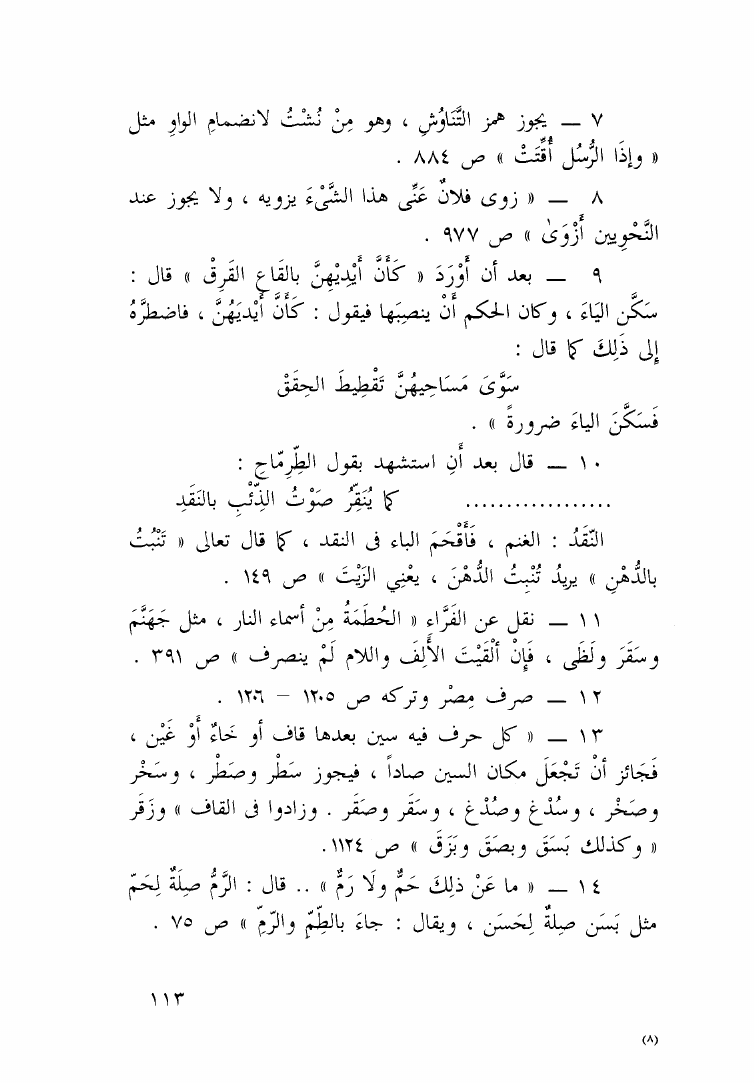 ٧ — يجوز همز التَّنَاوُشِ ، وهو مِنْ نُشْتُ لانضمامِ الواوِ مثل
« وإذَا الرُّسُل أُقِّتَتْ » ص ٨٨٤ .
٨ — « زوى فلانٌ عَنِّى هذا الشَّيْءَ يزويه ، ولا يجوز عند
النَّحْوِيين أَزْوَىٰ » ص ٩٧٧ .
٩ — بعد أن أَوْرَدَ « كَأَنَّ أَيْدِيْهِنَّ بالقَاعِ القَرِقْ » قال :
سَكَّن اليَاءَ ، وكان الحكم أَنْ ينصِبَها فيقول : كَأَنَّ أَيْديَهُنَّ ، فاضطرَّهُ
إلى ذَلِكَ كما قال :
سَوَّىَ مَسَاحيهُنَّ تَقْطِيطَ الحِقَقْ
فَسَكَّنَ الياءَ ضرورةً » .
١٠ — قال بعد أَنِ استشهد بقول الطِّرِمّاحِ :
.................. كما يُنَقِّرُ صَوْتُ الذِّئْبِ بالنَقَدِ
النَّقَدُ : الغنم ، فَأَقْحَمَ الباء فى النقد ، كما قال تعالى « تَنْبُتُ
بالدُّهْنِ » يريدُ تُنْبِتُ الدُّهْنَ ، يعْنِي الزَيْتَ » ص ١٤٩ .
١١ — نقل عن الفَرَّاءِ « الحُطَمَةُ مِنْ أسماء النار ، مثل جَهَنَّمَ
وسَقَرَ ولَظَى ، فَإِنْ أَلْقَيْتَ الأَلِفَ واللام لَمْ ينصرف » ص ٣٩١ .
١٢ — صرف مِصْر وتركه ص ١٢٠٥ – ١٢٠٦ .
١٣ — « كل حرف فيه سين بعدها قاف أو خَاءٌ أَوْ غَيْن ،
فَجَائز أَنْ تَجْعَلَ مكان السين صاداً ، فيجوز سَطْر وصَطْر ، وسَخْر
وصَخْر ، وسُدْغ وصُدْغ ، وسَقَر وصقَر . وزادوا فى القاف » وزَقَر
« وكذلك بَسَقَ وبصَقَ وبَزَقَ » ص ١١٢٤ .
١٤ — « ما عَنْ ذلِكَ حَمٌّ ولَا رَمٌّ » .. قال : الرَّمُّ صِلَةٌ لِحَمّ
مثل بَسَن صِلةٌ لِحَسَن ، ويقال : جاءَ بالطِّمّ والرِّمِّ » ص ٧٥ .
١١٣
(٨)